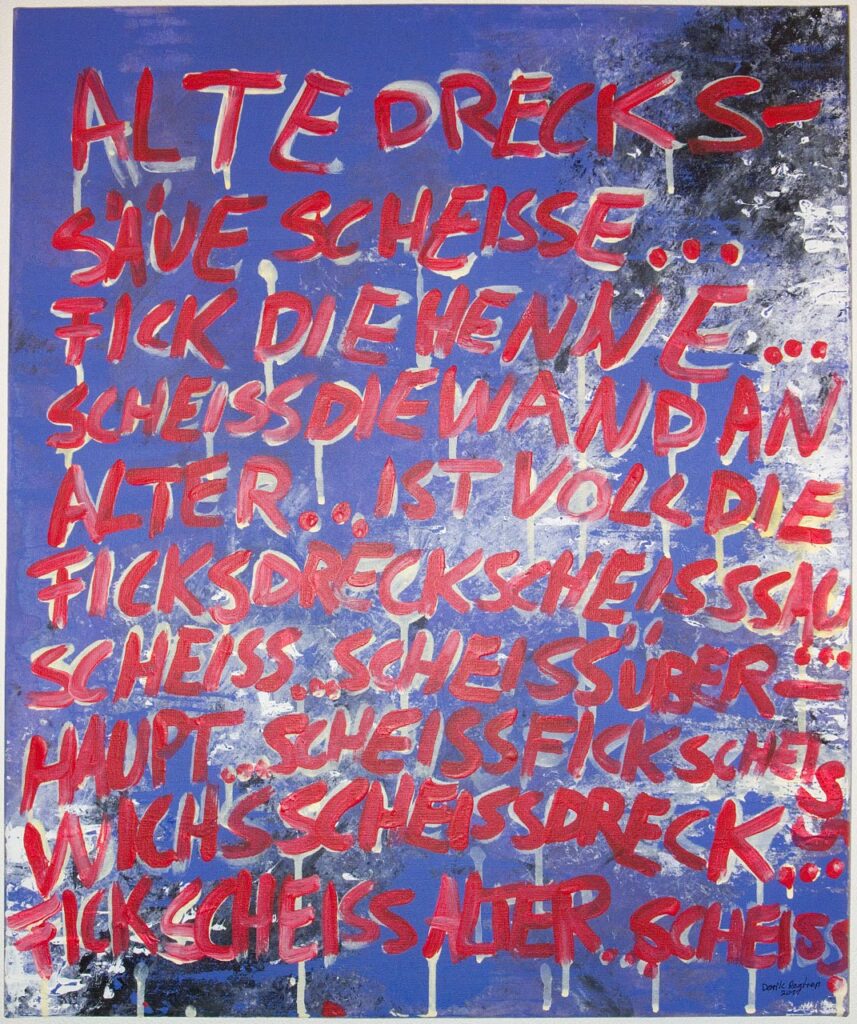 ALTE DRECKS-
SÄUE SCHEISSE...
FICK DIE HENNE...
SCHEISS DIE WAND AN
ALTER... IST VOLL DIE
FICKSDRECKSCHEISSSAU
SCHEISS... SCHEISSÜBER-...
HAUPT... SCHEISSFICKSCHEISS
WICHSSCHEISSDRECK...
FICKSCHEISS ALTER... SCHEISS
2017